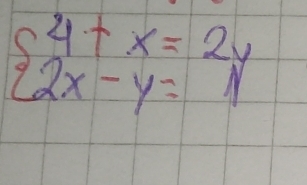 { 4 + x = 2y
{ 2x - y = 1